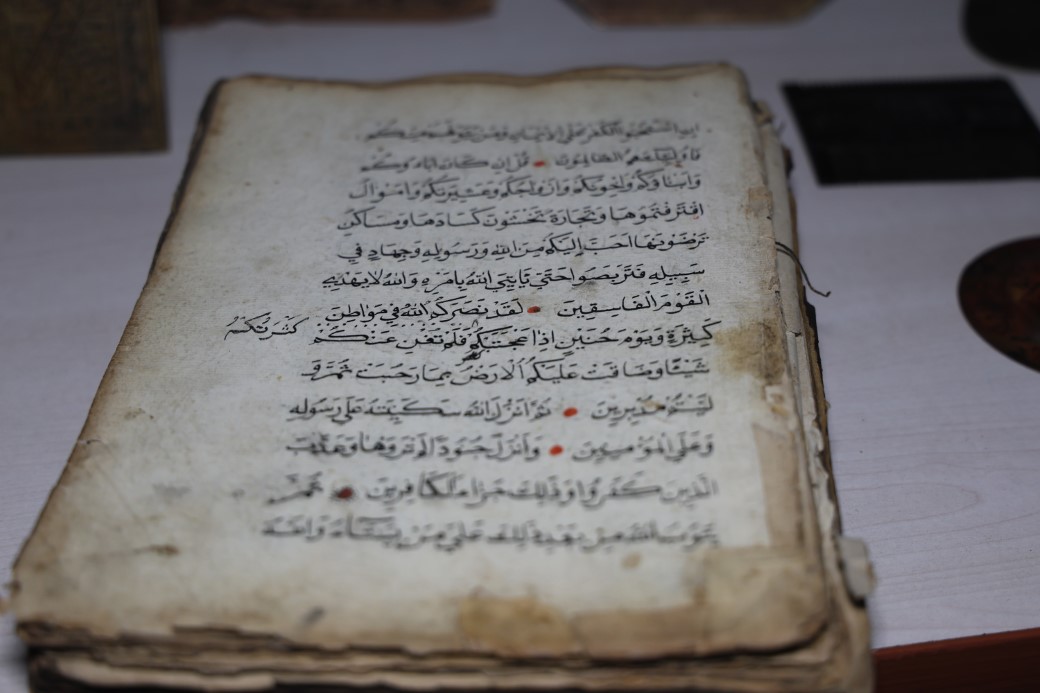 ان استحبوا الكفر على الايمان ومن يتولهم منكم
فاولئك هم الظالمون • قل ان كان اباؤكم
وابناؤكم واخونكم وازواجكم وعشيرتكم واموال
اقترفتموها وتجارة تخشون كسادها ومساكن
ترضونها احب اليكم من الله ورسوله وجهاد في
سبيله فتربصوا حتى ياتي الله بامره والله لا يهدي
القوم الفاسقين • لقد نصركم الله في مواطن
كثيرة ويوم حنين اذ اعجبتكم فلم تغن عنكم
كثرتكم
شيئا وضاقت عليكم الارض بما رحبت ثم و
ليتم مدبرين • ثم انزل الله سكينته على رسوله
وعلى المؤمنين • وانزل جنودا لم تروها وعذب
الذين كفروا وذلك جزاء الكافرين • ثم
يتوب الله من بعد ذلك على من يشاء والله